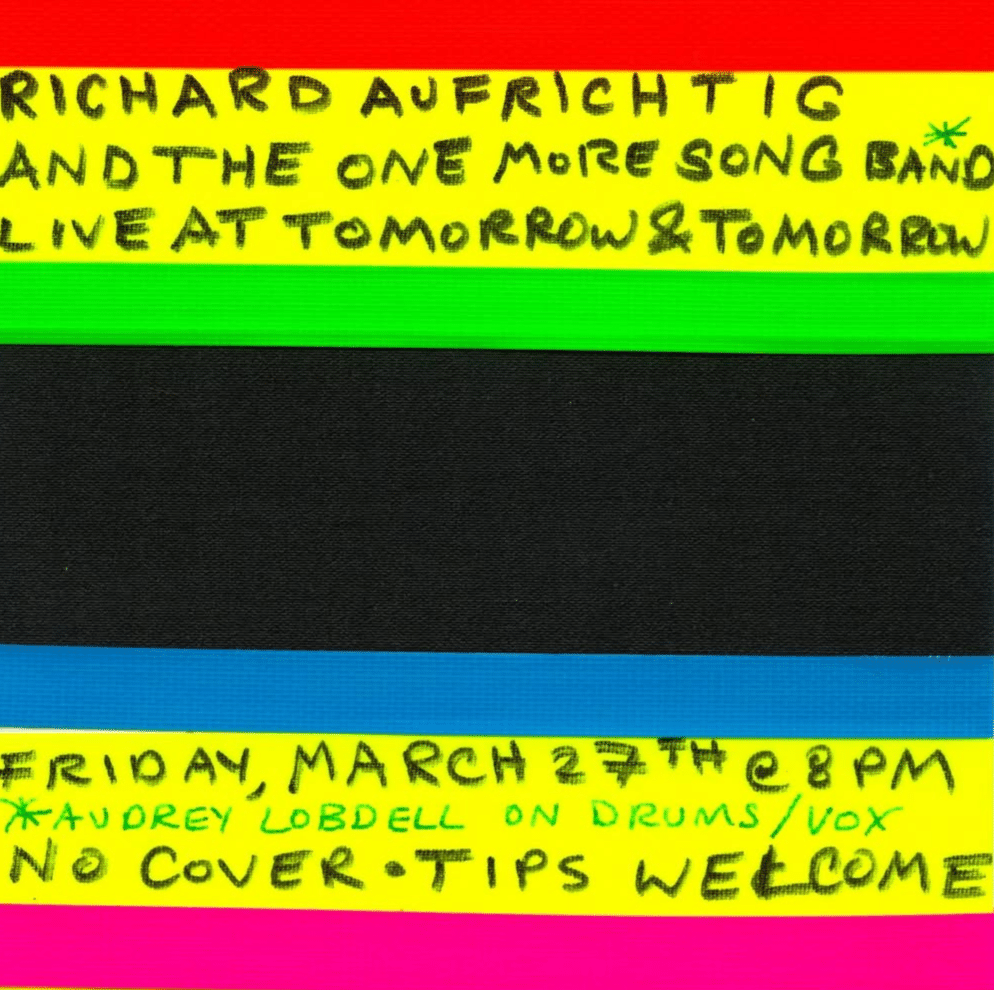 RICHARD AUFRICHTIG
AND THE ONE MORE SONG BAND*
LIVE AT TOMORROW & TOMORROW
FRIDAY, MARCH 27TH @ 8 PM
*AUDREY LOBDELL ON DRUMS/VOX
NO COVER • TIPS WELCOME